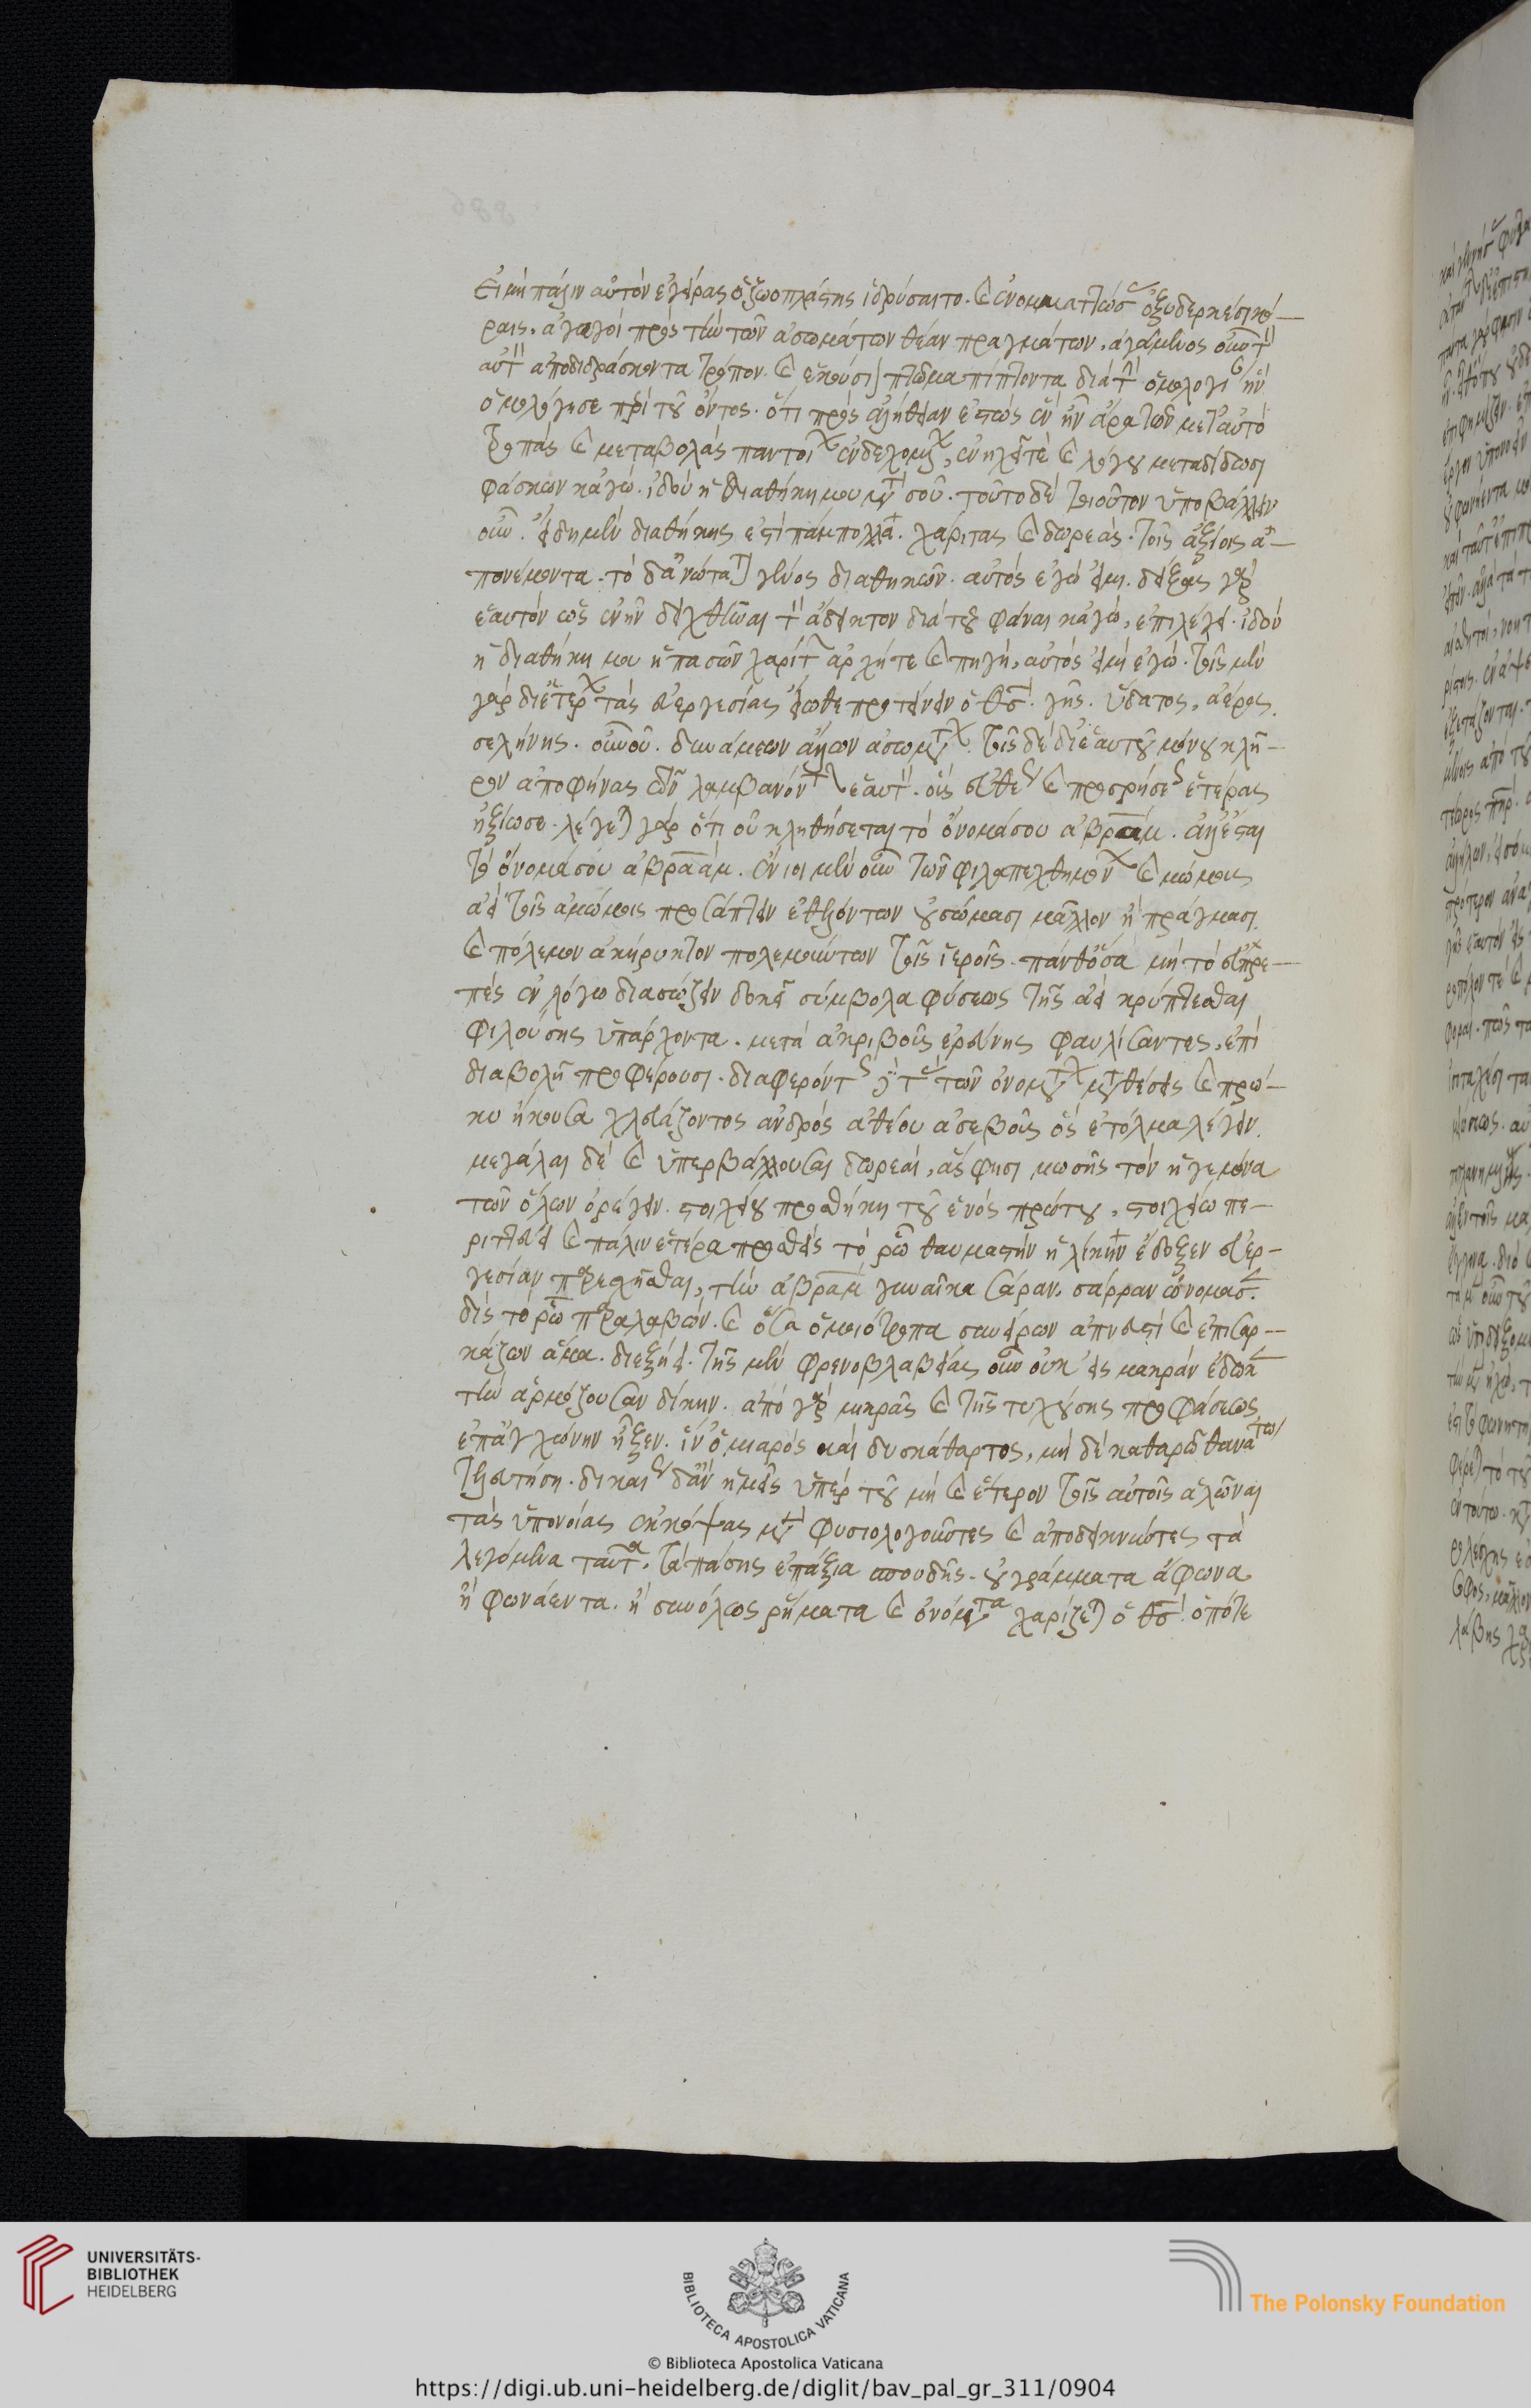 Εἰ μὴ πάλιν αὐτὸν ἐγείρας ὁ ζωοπλάστης ἱδρύσαιτο. καὶ ἐνομματώσας ὀξυδερκέσι κό-
ραις. ἀγάγοι πρὸς τὴν τῶν ἀσωμάτων θέαν πραγμάτων. ἀγάμενος οὖν τὸν
αὐτὸν ἀποδιδράσκοντα τρόπον. καὶ ἑκούσιον πτῶμα πίπτοντα διὰ τὴν ὁμολογίαν ἣν
ὁμολόγησε περὶ τοῦ ὄντος. ὅτι πρὸς ἀλήθειαν ἑστὼς ἓν ἦν ἄρα τῶν μετ' αὐτὸ
τροπὰς καὶ μεταβολὰς παντοίων ἐνδεχομένων, ἐνηχεῖ τὲ καὶ λόγου μεταδίδωσι
φάσκων κἀγώ. ἰδοὺ ἡ διαθήκη μου μετὰ σοῦ. τοῦτο δὲ τοιοῦτον ὑποβάλλειν
οὖν. εἴδη μὲν διαθήκης ἐστὶ πάμπολλα. χάριτας καὶ δωρεὰς. τοῖς ἀξίοις ἀ-
πονέμοντα. τὸ δ' ἀνώτατον γένος διαθηκῶν. αὐτὸς ἐγώ εἰμι. δείξας γὰρ
ἑαυτὸν ὡς ἐνῆν δειχθῆναι τὸν ἄδεικτον διὰ τοῦ φάναι κἀγώ, ἐπιλέγει. ἰδοὺ
ἡ διαθήκη μου ἡ πασῶν χαρίτων ἀρχή τε καὶ πηγή, αὐτός εἰμὶ ἐγώ. τοῖς μὲν
γὰρ δι' ἑτέρων τὰς εὐεργεσίας εἴωθε προτείνειν ὁ θσ. γῆς. ὕδατος, ἀέρος.
σελήνης. οὐνοῦ. δυνάμεων ἄλλων ἀσωμάτων. τοῖς δὲ δι' ἑαυτοῦ μόνου κλῆ-
ρον ἀποφήνας τῶν λαμβανόντων ἑαυτόν. οὓς εὐθὺς καὶ προσρήσεως ἑτέρας
ἠξίωσε. λέγεται γὰρ ὅτι οὐ κληθήσεται τὸ ὄνομά σου ἀβράμ. ἀλλ' ἔσται
τὸ ὄνομά σου ἀβραάμ. ἔνιοι μὲν οὖν τῶν φιλαπεχθημόνων καὶ μώμους
ἀεὶ τοῖς ἀμώμοις προσάπτειν ἐθελόντων οὐ σώμασι μᾶλλον ἢ πράγμασι.
καὶ πόλεμον ἀκήρυκτον πολεμούντων τοῖς ἱεροῖς. πάνθ' ὅσα μὴ τὸ εὐπρε-
πὲς ἐν λόγω διασώζειν δοκεῖ σύμβολα φύσεως τῆς ἀεὶ κρύπτεσθαι
φιλούσης ὑπάρχοντα. μετὰ ἀκριβοῦς ἐρεύνης φαυλίσαντες. ἐπὶ
διαβολῆ προφέρουσι. διαφερόντως δὲ τὰς τῶν ὀνομάτων μεταθέσεις καὶ πρώ-
ην ἤκουσα χλευάζοντος ἀνδρὸς ἀθέου ἀσεβοῦς ὃς ἐτόλμα λέγειν.
μεγάλαι δὲ καὶ ὑπερβάλλουσαι δωρεαὶ, ἅς φησι μωσῆς τὸν ἡγεμόνα
τῶν ὅλων ὀρέγειν. στοιχείου προσθήκη τοῦ ἑνὸς πρώτου, στοιχείω πε-
ριττεύει καὶ πάλιν ἕτερα προσθεὶς τὸ ρῶ θαυμαστὴν ἡλίκην ἔδοξεν εὐερ-
γεσίαν παρεσχῆσθαι, τὴν ἀβραμ γυναῖκα σάραν. σάρραν ὠνόμασε.
δὶς τὸ ρῶ παραλαβών. καὶ ὅσα ὁμοιότροπα συνείρων ἀπνευστὶ καὶ ἐπισαρ-
κάζων ἅμα. διεξήει. τῆς μὲν φρενοβλαβείας οὖν οὐκ εἰς μακρὰν ἔδωκε
τὴν ἁρμόζουσαν δίκην. ἀπὸ γὰρ μικρᾶς καὶ τῆς τυχούσης προφάσεως
ἐπ' ἀγχόνην ἦξεν. ἵν' ὁ μιαρὸς καὶ δυσκάθαρτος, μὴ δὲ καθαρῶ θανάτω
τελευτήση. δικαίως δ' ἂν ἡμεῖς ὑπὲρ τοῦ μὴ καὶ ἕτερον τοῖς αὐτοῖς ἁλῶναι
τὰς ὑπονοίας ἐκκόψαιμεν φυσιολογοῦντες καὶ ἀποδεικνύντες τὰ
λεγόμενα ταῦτα. τὰ πάσης ἐπάξια σπουδῆς. οὐ γράμματα ἄφωνα
ἢ φωνάεντα. ἢ συνόλως ρήματα καὶ ὀνόματα χαρίζεται ὁ θσ. ὁπότε
UNIVERSITÄTS-
BIBLIOTHEK
HEIDELBERG
BIBLIOTECA APOSTOLICA VATICANA
The Polonsky Foundation
© Biblioteca Apostolica Vaticana
https://digi.ub.uni-heidelberg.de/diglit/bav_pal_gr_311/0904